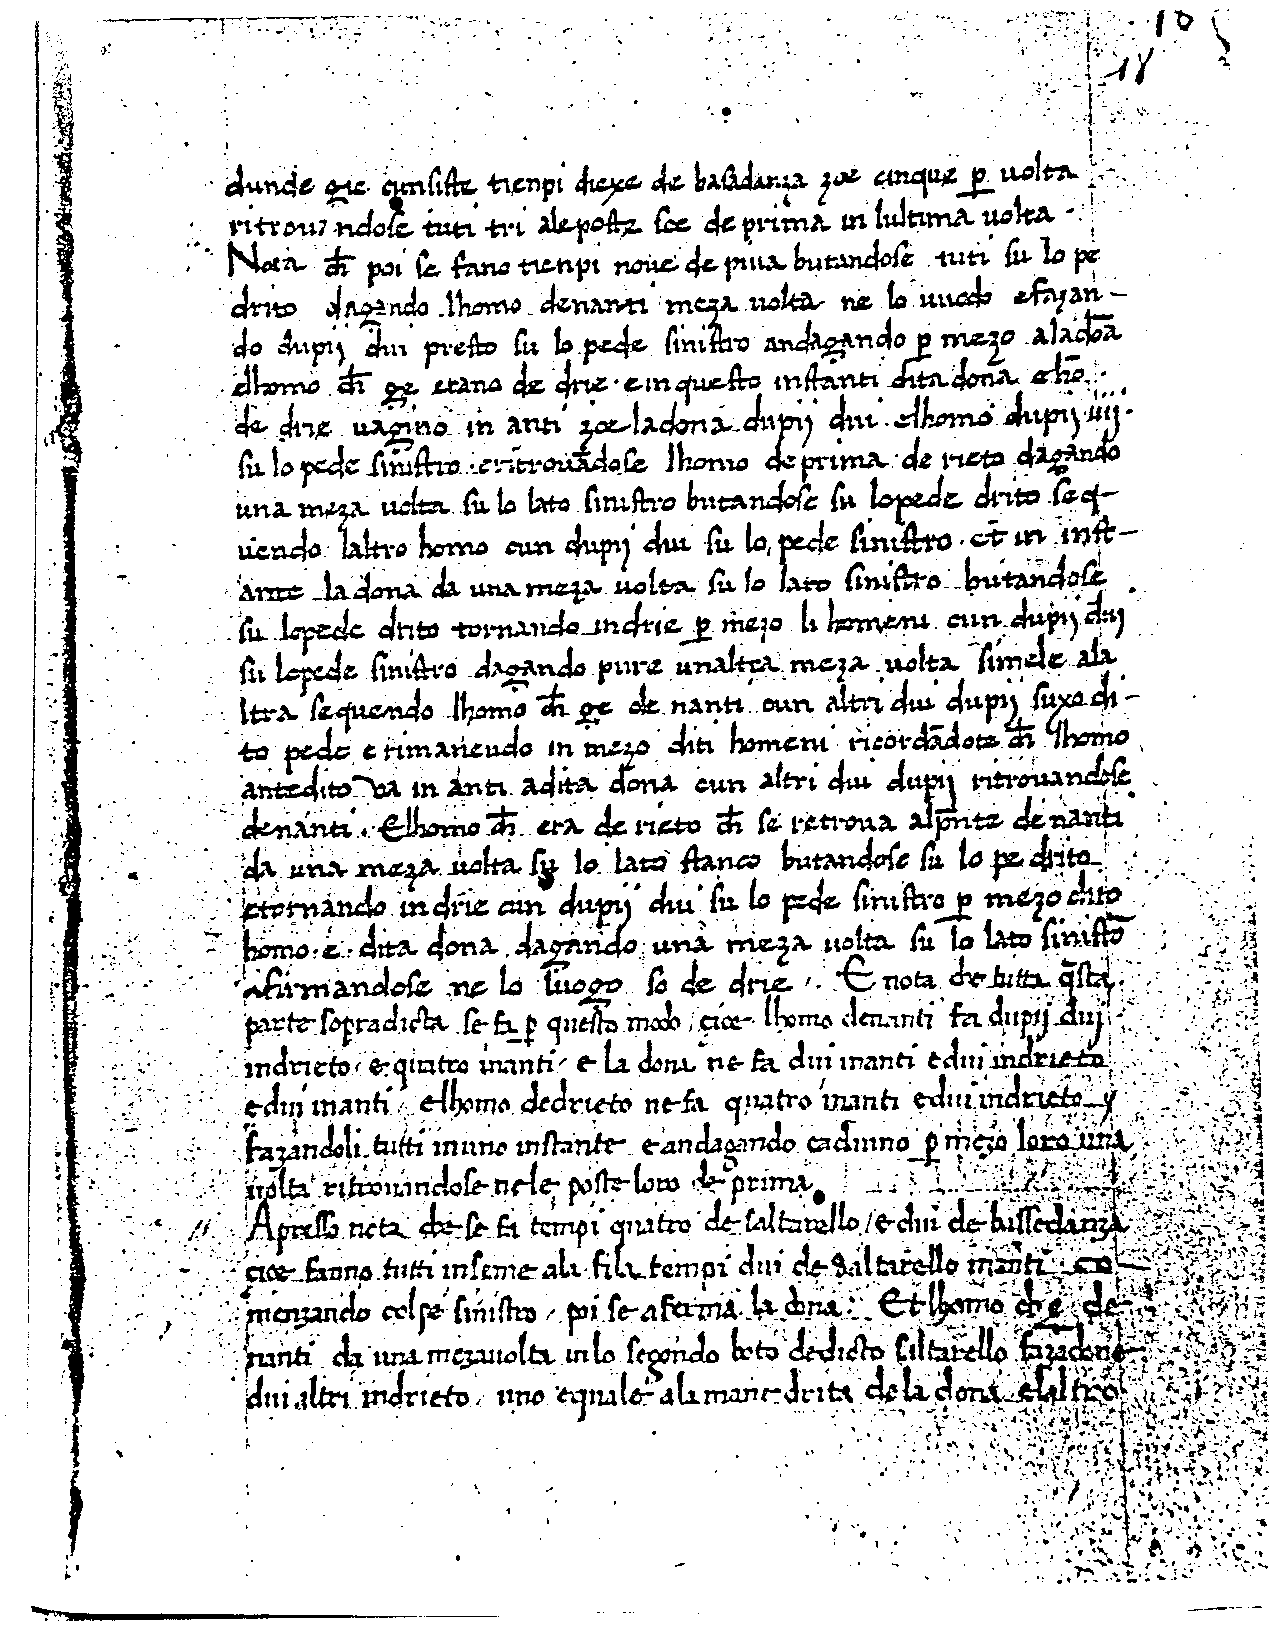 18
dunde gie cunsiste tienpi diexe de basadanza zoe cinque p uolta
ritrouandose tuti tri ale poste soe de prima in lultima uolta
Nota ch̄ poi se fano tienpi noue de piua butandose tuti su lo pe
drito dagando lhomo denanti meza uolta ne lo uuodo e fazan–
do dupij dui presto su lo pede sinistro andagando p mezo a la dōa
elhomo ch̄ ge erano de drie · e in questo instanti dita dona e ho.
de drie uagino in anti zoe la dona dupij dui · elhomo dupij iiij·
su lo pede sinistro · e ritrouādose lhomo de prima de rieto dagando
una meza uolta su lo lato sinistro butandose su lo pede drito seq–
uendo laltro homo cun dupij dui su lo pede sinistro · et in inst–
ante la dona da una meza uolta su lo lato sinistro butandose
su lo pede drito tornando indrie p mezo li homeni cun dupij dui
su lo pede sinistro dagando pure unaltra meza uolta simele ala
ltra sequendo lhomo ch̄ ge de nanti cun altri dui dupij suxo di–
to pede e rimanendo in mezo diti homeni ricordādote ch̄ lhomo
antedito va in anti a dita dona cun altri dui dupij ritrouandose
denanti. Elhomo ch̄ era de rieto ch̄ se retroua al pn̄te denanti
da una meza uolta su lo lato stanco butandose su lo pe drito
e tornando indrie cun dupij dui su lo pede sinistro p mezo dito
homo · e · dita dona dagando una meza uolta su lo lato sinistro
afirmandose ne lo luogo so de drie. E nota che tutta q̄sta
parte sopradicta se fa p questo modo, cioe lhomo denanti fa dupij dui
indrieto, e quatro inanti, e la dona ne fa dui inanti e dui indrieto
e dui inanti, elhomo dedrieto ne fa quatro inanti e dui indrieto
fazandoli tutti in uno instante e andagando cadauno p mezo loro una
uolta ritrouandose ne le poste loro de prima.
// Apresso nota che se fa tempi quatro de saltarello / e dui de bassedanza
cioe fanno tutti inseme ala fila tempi dui de saltarello inanti co–
menzando col pe sinistro, poi se aferma la dona. Et lhomo che de–
nanti da una meza uolta in lo segondo boto dedicto saltarello fazādone
dui altri indrieto, uno equale ala mane drita de la dona e laltro